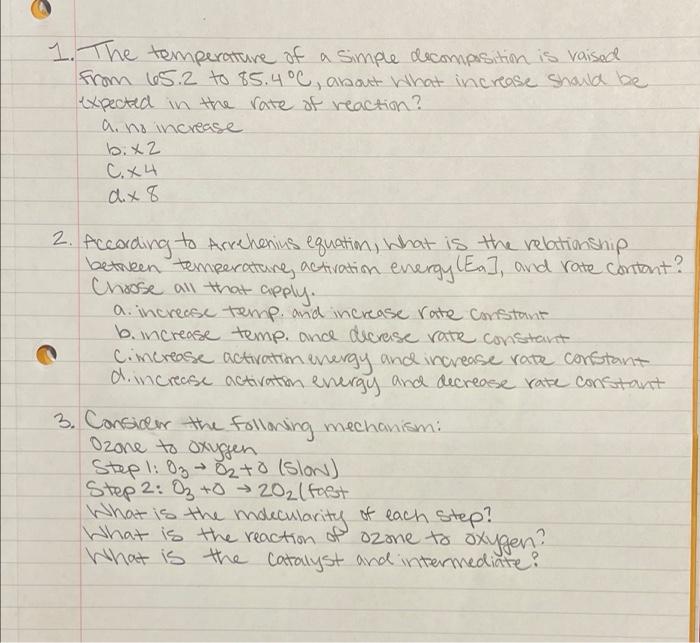 1. The temperature of a simple decomposition is raised
from 65.2 to 85.4°C, about what increase should be
expected in the rate of reaction?
a. no increase
b. x2
C. x4
d. x 8
2. According to Arrehenius equation, what is the relationship
between temperature, activation energy (Ea], and rate contant?
Choose all that apply.
a. increase temp. and increase rate constant
b. increase temp. and decrease rate constant
C. increase activation energy and increase rate constant
d. increase activation energy and decrease rate constant
3. Consider the following mechanism:
Ozone to oxygen
Step 1: O₃ → O₂ + O (slow)
Step 2: O₃ + O → 2O₂ (fast
What is the molecularity of each step?
What is the reaction of ozone to oxygen?
What is the catalyst and intermediate?